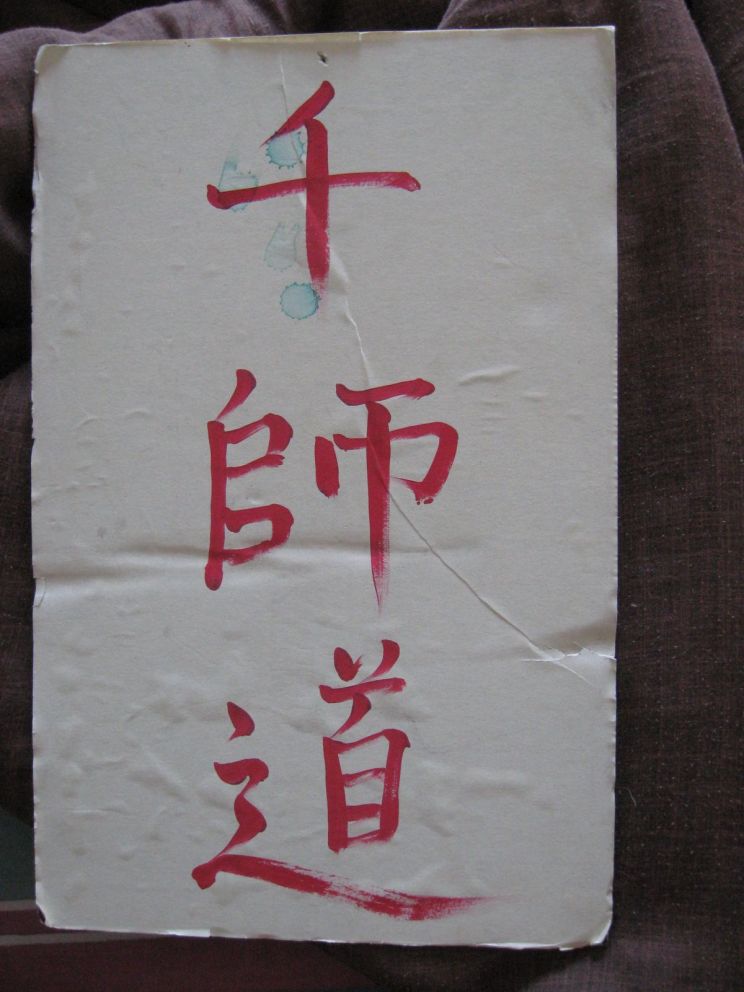 千師道